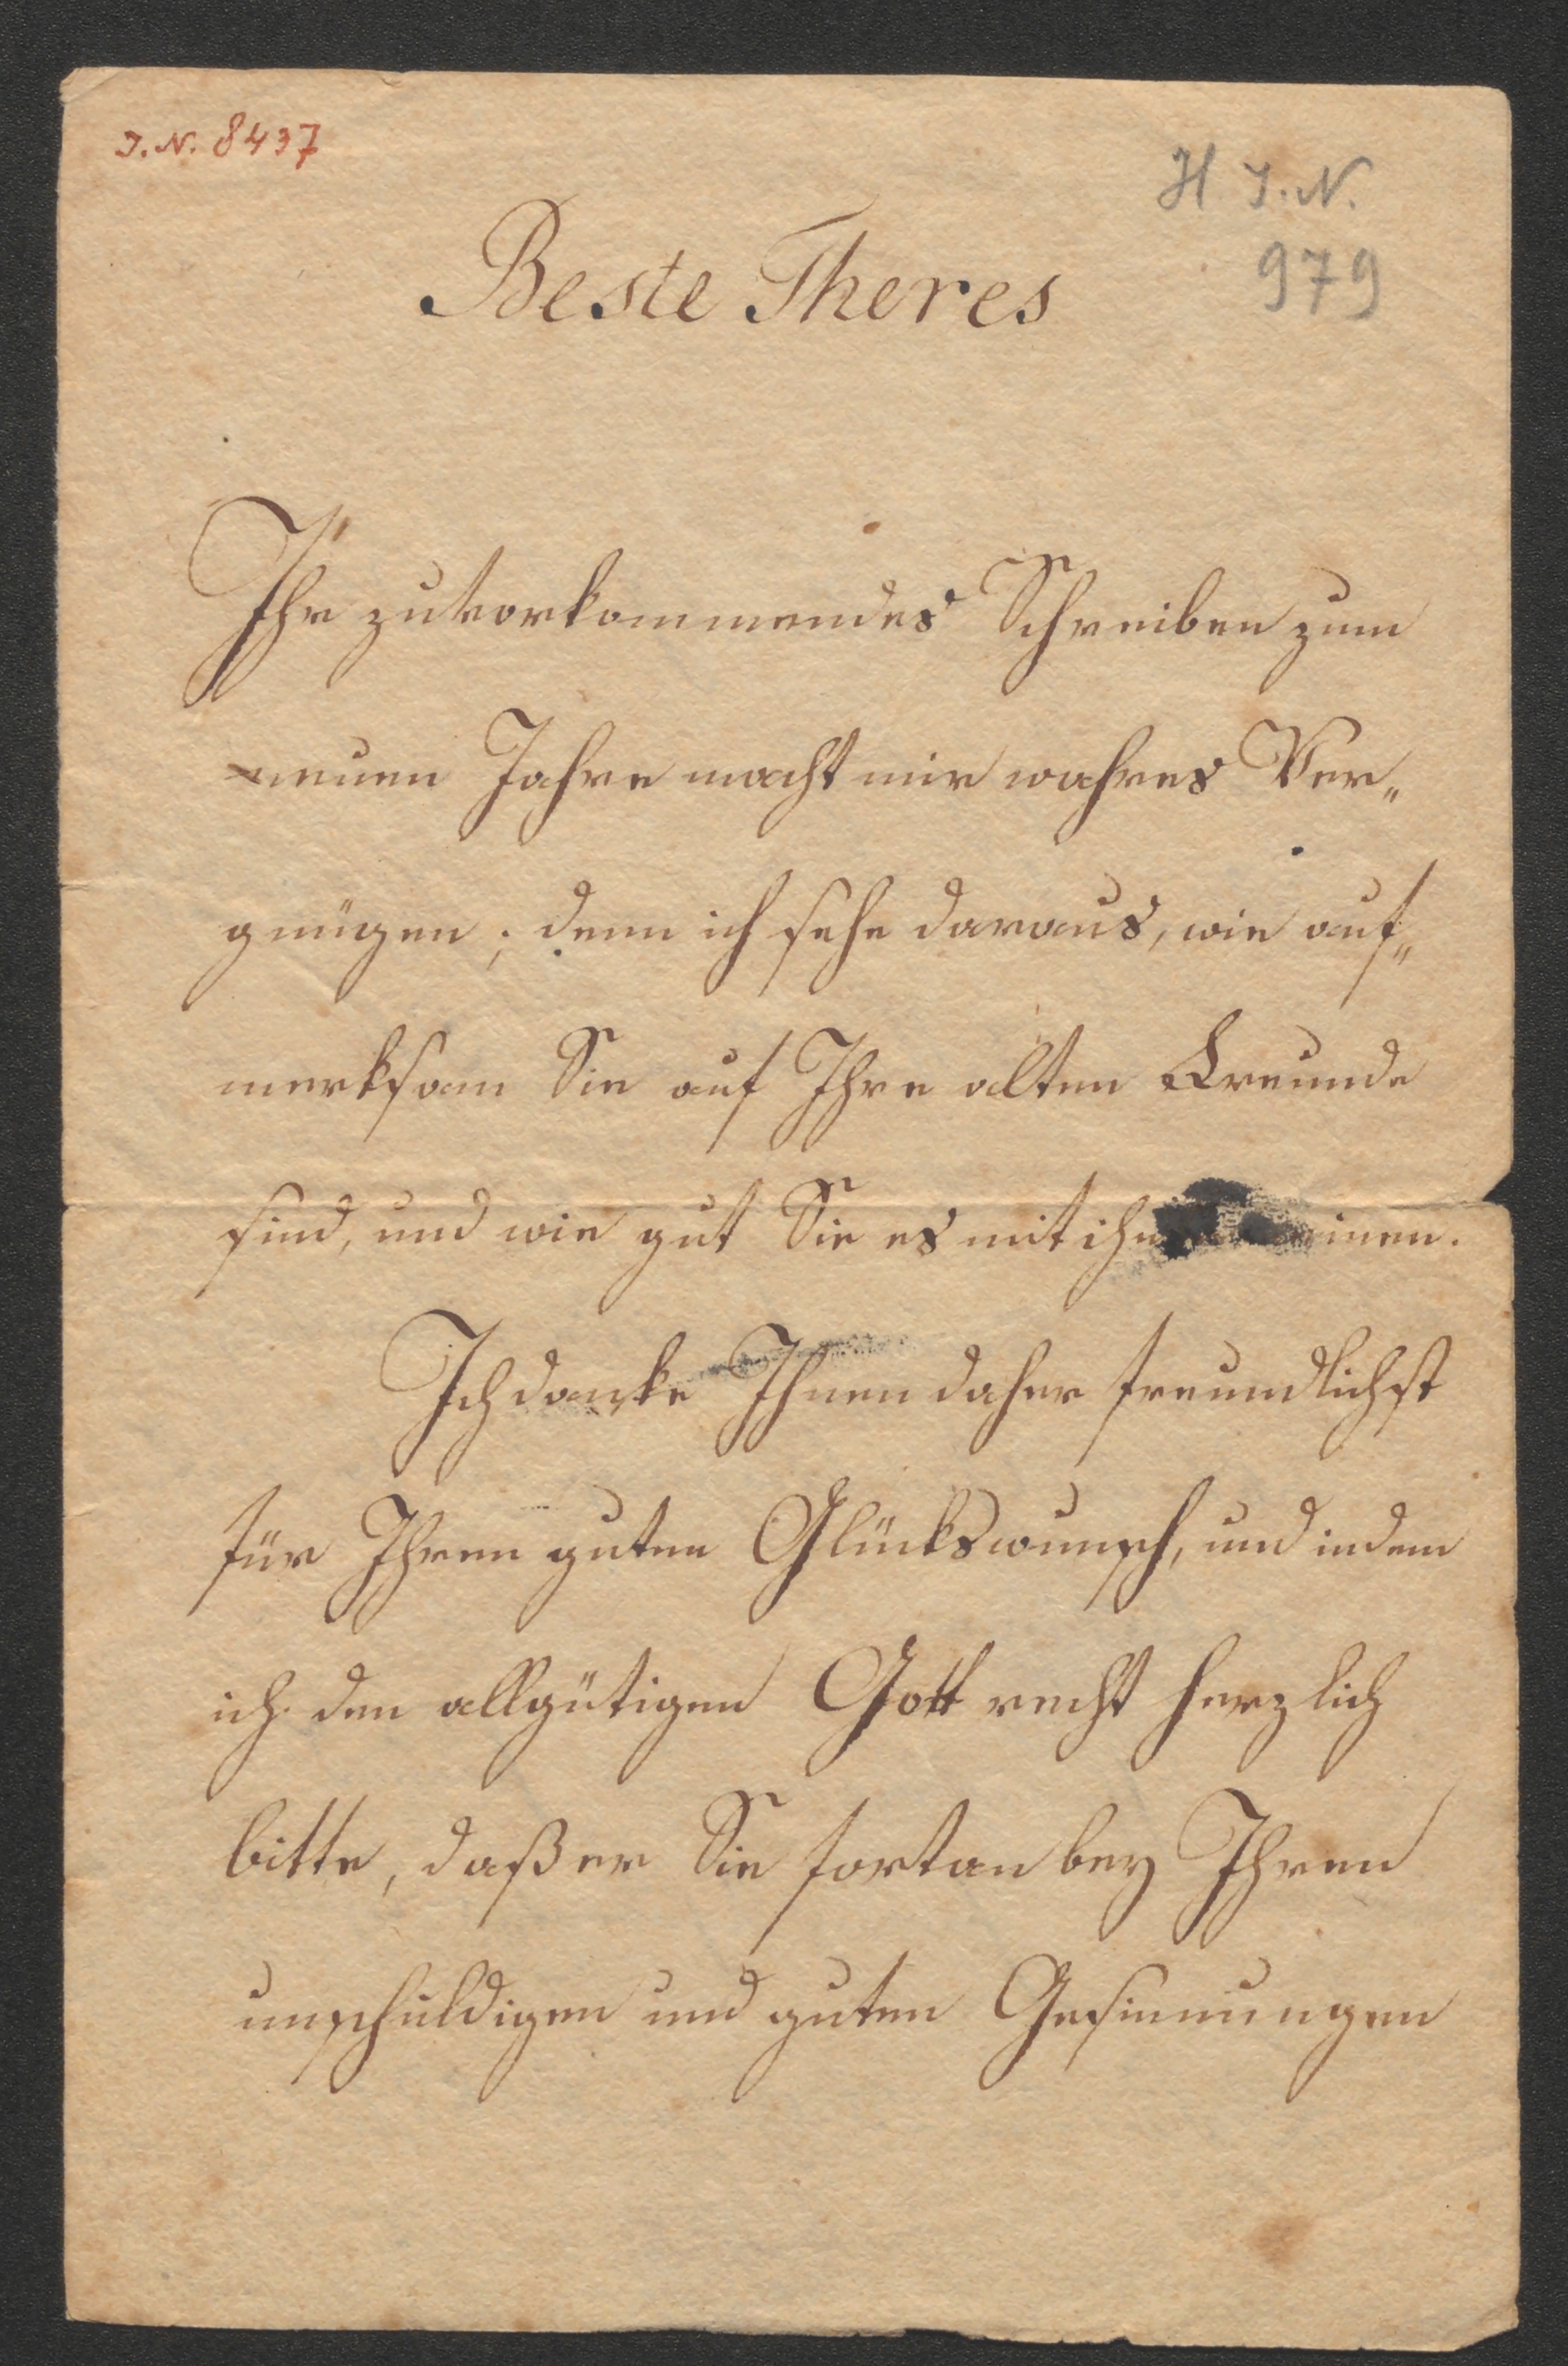 I. N. 8437
H. I. N.
979
Beste Theres
Ihr zuvorkommendes Schreiben zum
neuen Jahre macht mir wahres Ver„
gnügen; denn ich sehe daraus, wie auf„
merksam Sie auf Ihre alten Freunde
sind, und wie gut Sie es mit
Ich danke Ihnen daher freundlichst
für Ihren guten Glückswunsch, und indem
ich den allgütigen Gott recht herzlich
bitte, daß er Sie fortan bey Ihren
unschuldigen und guten Gesinnungen